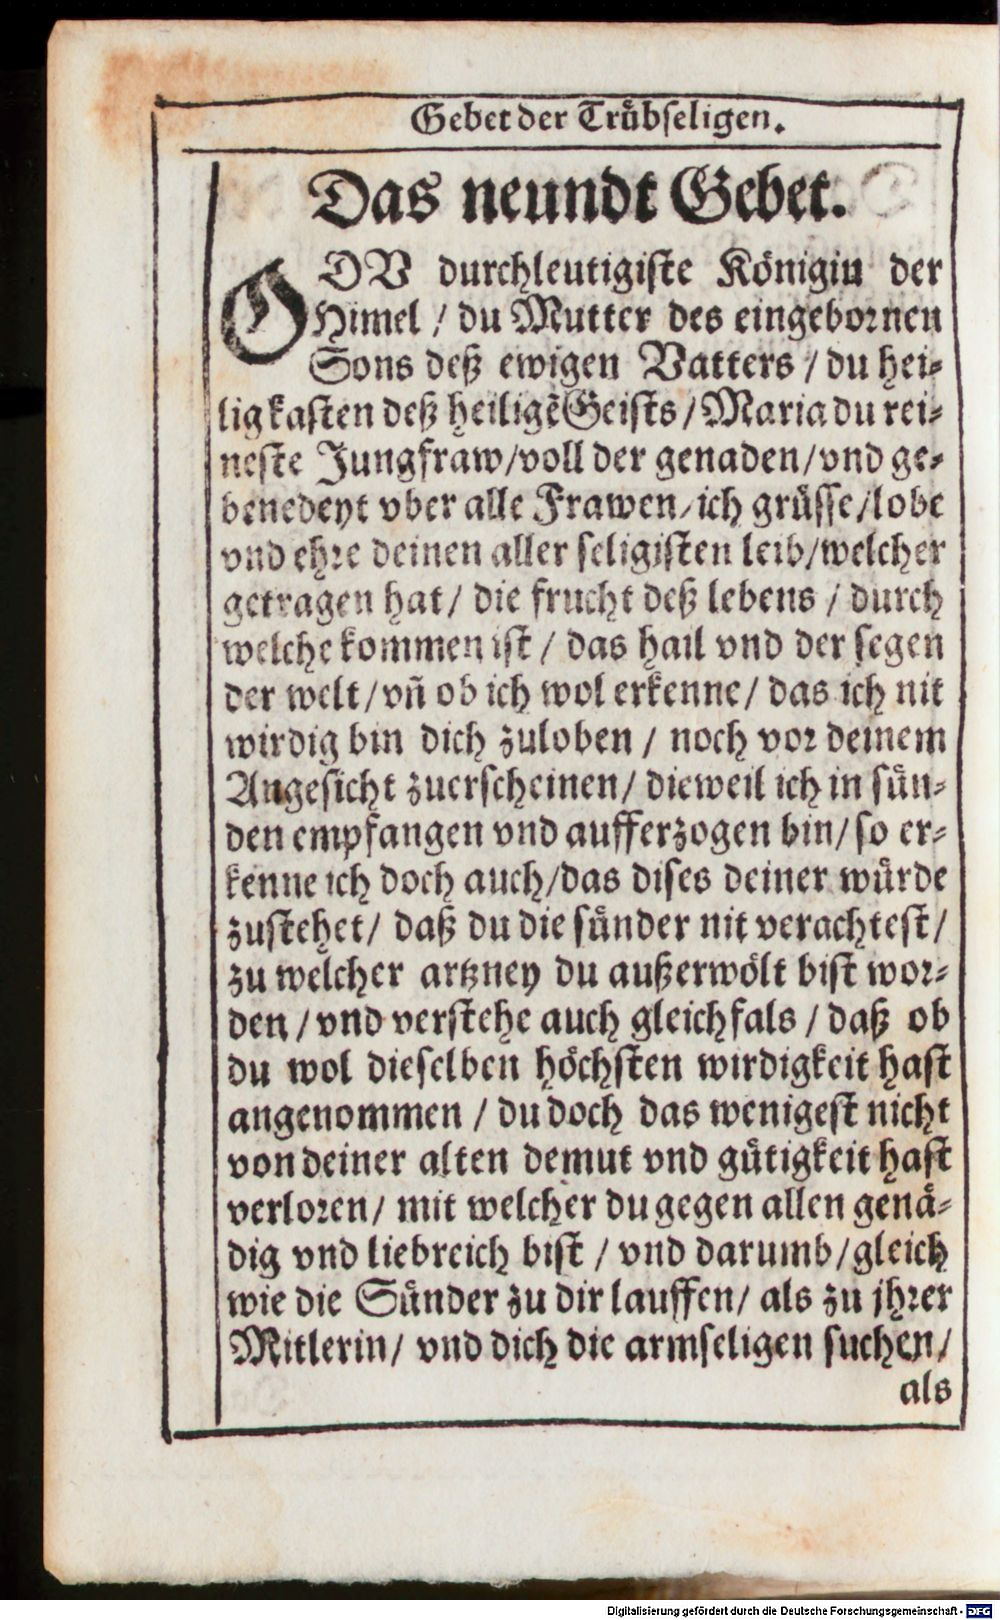 Gebet der Trübseligen.
Das neundt Gebet.
O DV durchleutigiste Königin der
Himel / du Mutter des eingebornen
Sons deß ewigen Vatters / du hei-
ligkasten deß heiligẽ Geists / Maria du rei-
neste Jungfraw/voll der genaden/vnd ge-
benedeyt vber alle Frawen/ich grüsse/lobe
vnd ehre deinen aller seligisten leib/welcher
getragen hat/ die frucht deß lebens / durch
welche kommen ist / das hail vnd der segen
der welt/vñ ob ich wol erkenne/ das ich nit
wirdig bin dich zuloben / noch vor deinem
Angesicht zuerscheinen/ dieweil ich in sün-
den empfangen vnd aufferzogen bin/ so er-
kenne ich doch auch/das dises deiner würde
zustehet/ daß du die sünder nit verachtest/
zu welcher artzney du außerwölt bist wor-
den / vnd verstehe auch gleichfals / daß ob
du wol dieselben höchsten wirdigkeit hast
angenommen / du doch das wenigest nicht
von deiner alten demut vnd gütigkeit hast
verloren/ mit welcher du gegen allen genä-
dig vnd liebreich bist / vnd darumb/gleich
wie die Sünder zu dir lauffen/ als zu jhrer
Mitlerin/ vnd dich die armseligen suchen/
als
Digitalisierung gefördert durch die Deutsche Forschungsgemeinschaft - DFG